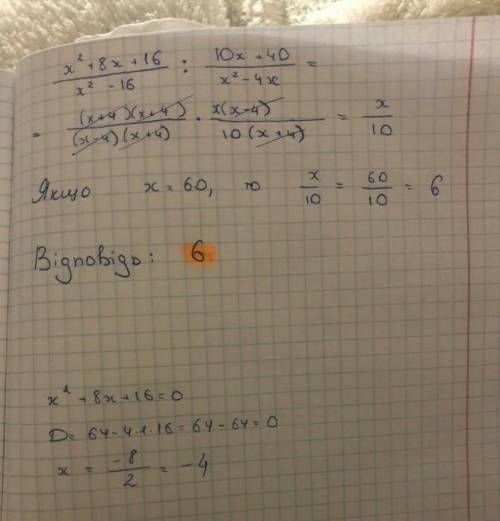 x² + 8x + 16 / x² - 16 : 10x + 40 / x² - 4x =
= (x+4)(x+4) / (x-4)(x+4) · x(x-4) / 10(x+4) = x / 10
Якщо x = 60, то x/10 = 60/10 = 6
Відповідь: 6
x² + 8x + 16 = 0
D = 64 - 4·1·16 = 64 - 64 = 0
x = -8/2 = -4